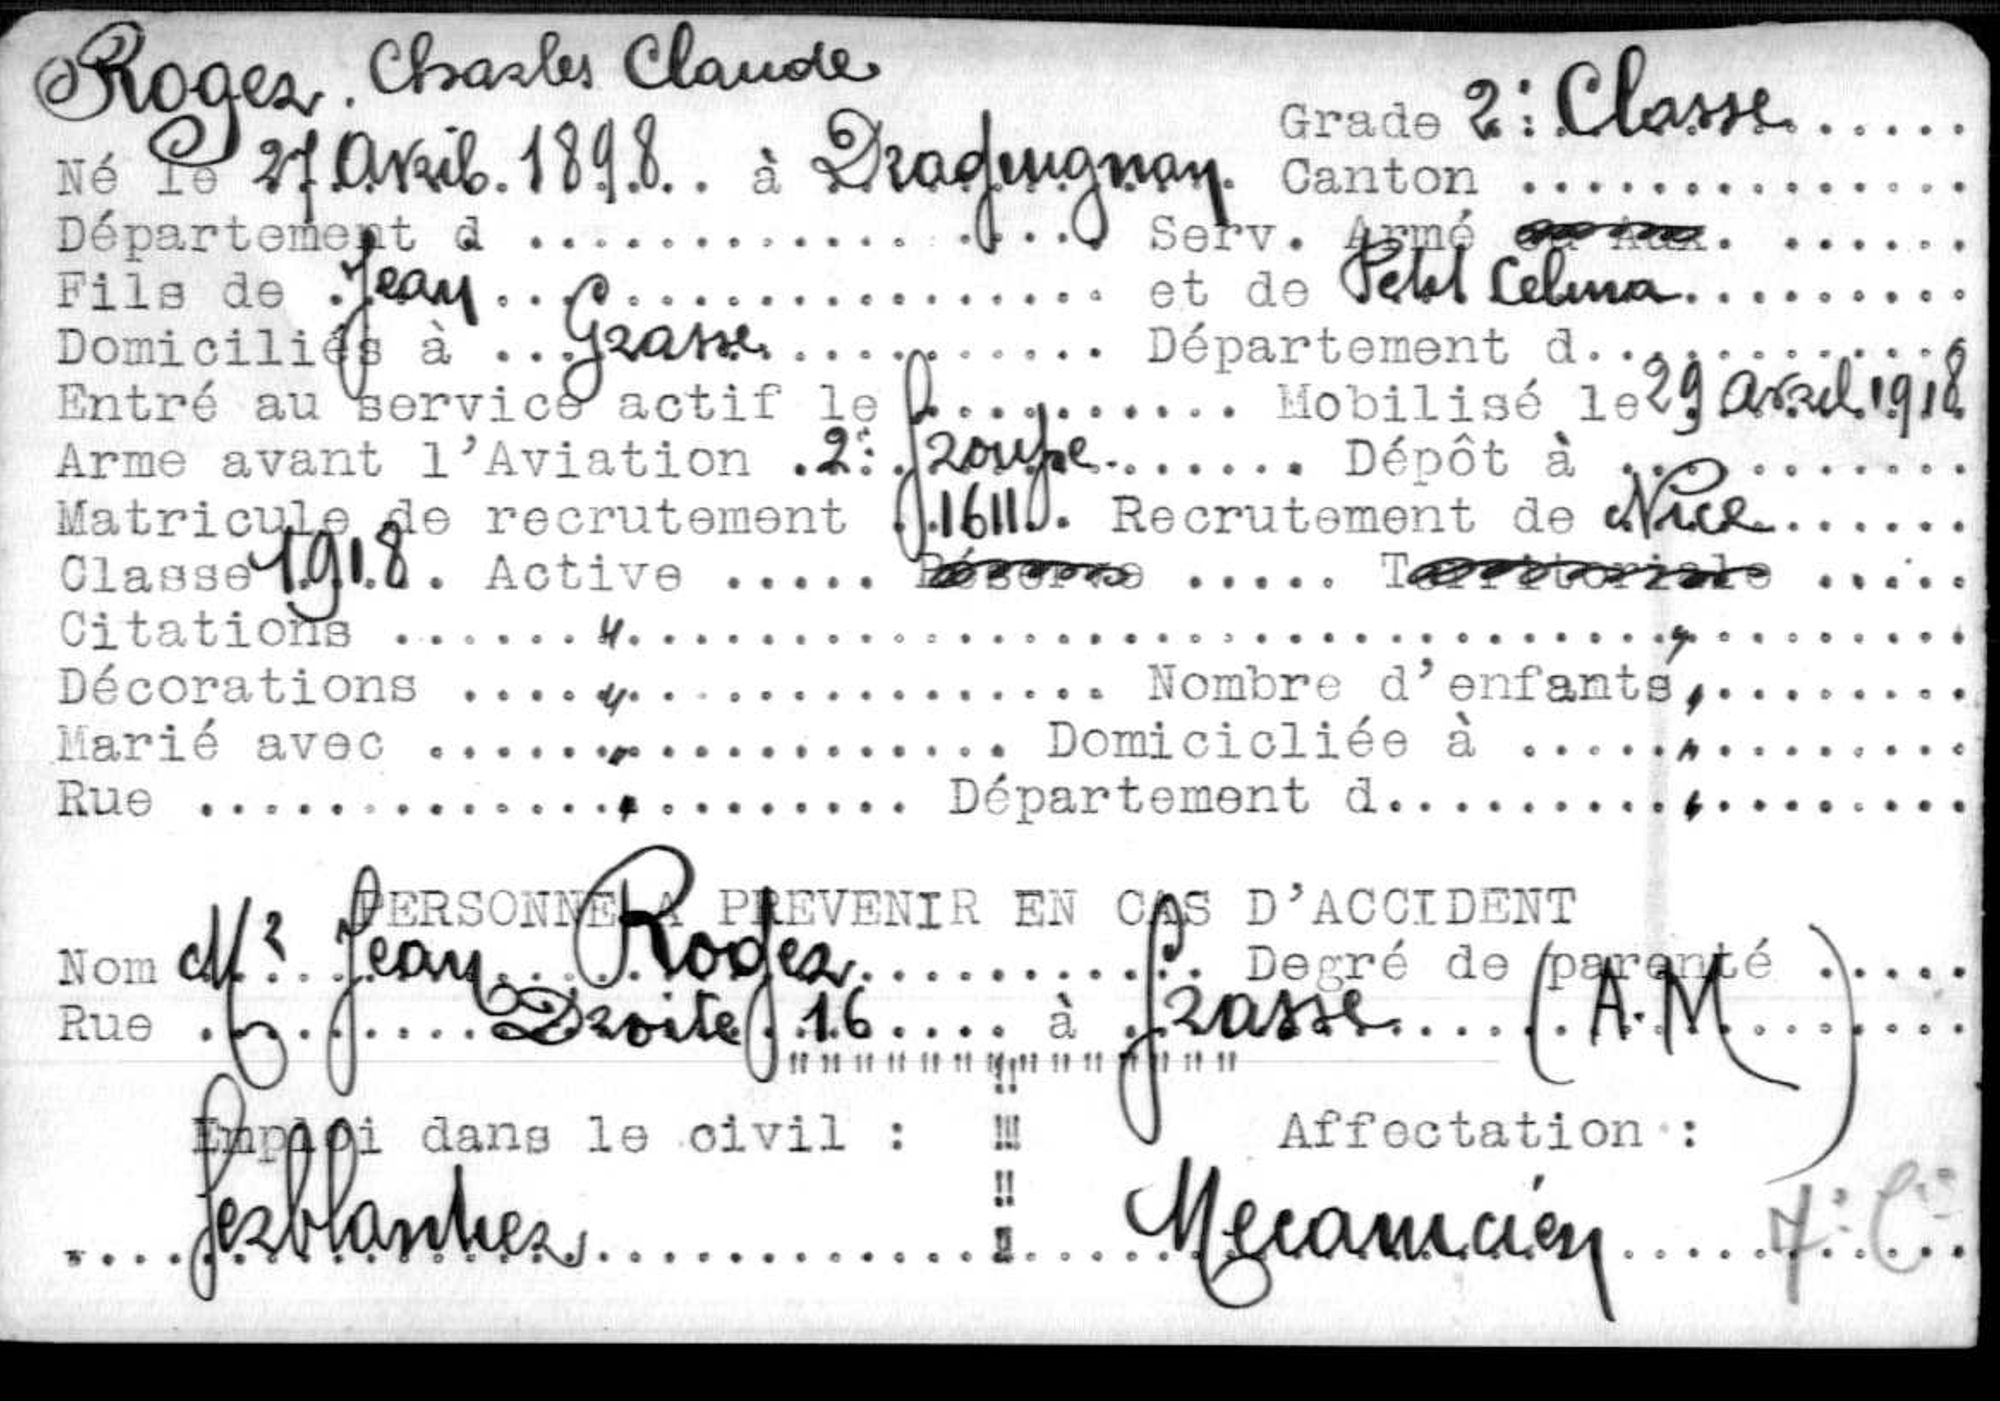 Roger. Charles Claude
Grade 2e Classe
Né le 27 Avril 1898 à Draguignan Canton
Département d Serv. Armé ou Aux.
Fils de Jean et de Petit Celma
Domiciliés à Grasse Département d
Entré au service actif le Mobilisé le 29 Avril 1918
Arme avant l'Aviation 2e Groupe Dépôt à
Matricule de recrutement 1611 Recrutement de Nice
Classe 1918. Active Réserve Territoriale
Citations "
Décorations " Nombre d'enfants "
Marié avec " Domicicliée à "
Rue " Département d "
PERSONNE A PREVENIR EN CAS D'ACCIDENT
Nom Mr Jean Roger Degré de parenté
Rue Droite 16 à Grasse (A.M)
Emploi dans le civil : Affectation :
Ferblantier Mecanicién 7e Cie